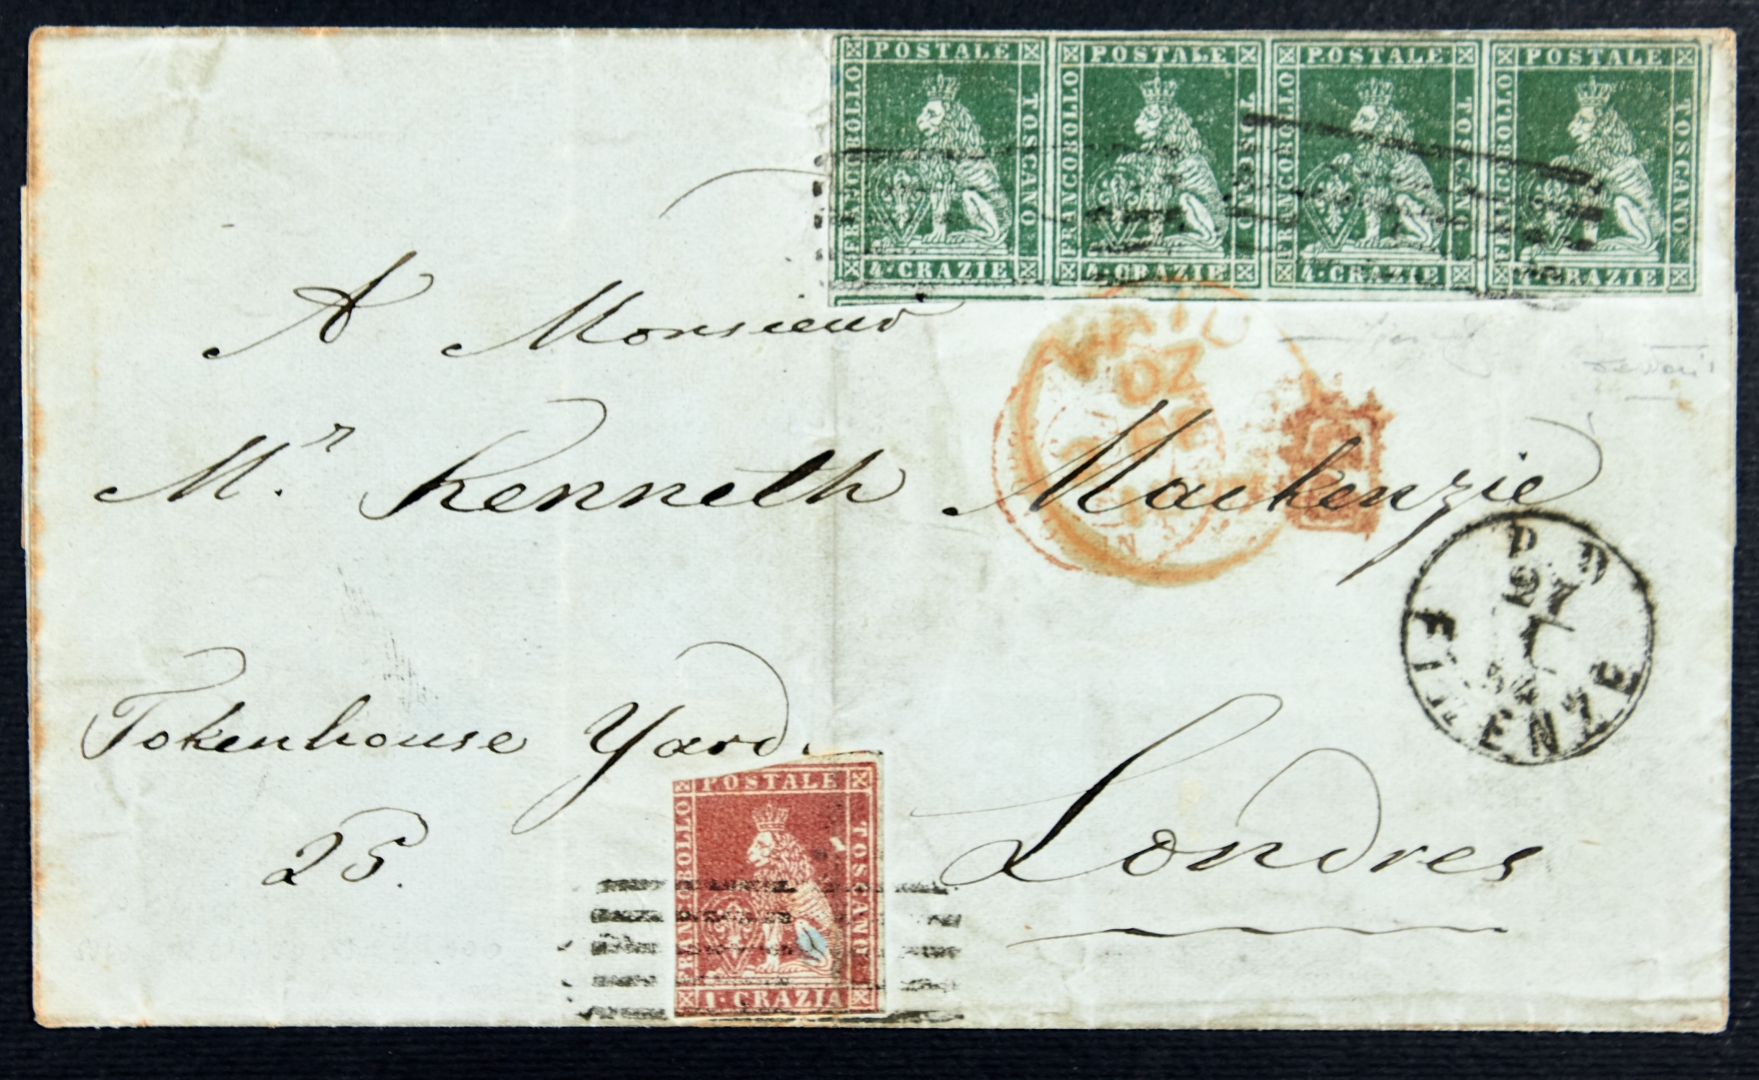 FRANCOBOLLO POSTALE TOSCANO
4. CRAZIE
FRANCOBOLLO POSTALE TOSCANO
4. CRAZIE
FRANCOBOLLO POSTALE TOSCANO
4. CRAZIE
FRANCOBOLLO POSTALE TOSCANO
4. CRAZIE
A Monsieur
Mr. Kenneth Mackenzie
Tokenhouse Yard
25.
Londres
PD
FIRENZE
FRANCOBOLLO POSTALE TOSCANO
1. CRAZIA